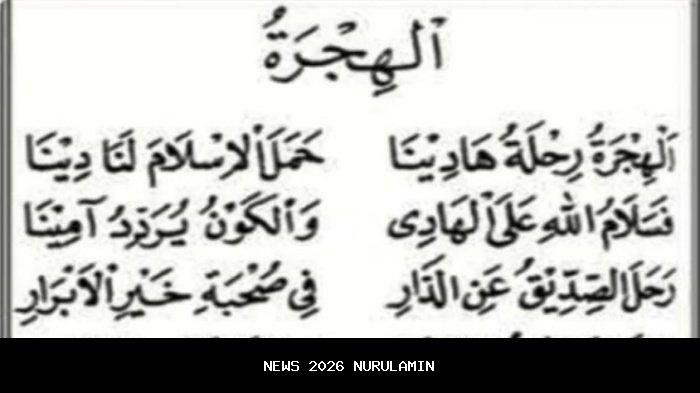 اَلْهِجْرَةُ
اَلْهِجْرَةُ رِحْلَةُ هَادِيْنَا حَمَلَ اْلاِسْلَامَ لَنَا دِيْنَا
فَسَلَامُ اللهِ عَلَى اْلهَادِى وَاْلكَوْنُ يُرَدِّدُ آمِيْنَا
رَحَلَ الصِّدِّيْقُ عَنِ الدَّارِ فِي صُحْبَةِ خَيْرِ اْلاَبْرَارِ
NEWS 2026 NURULAMIN